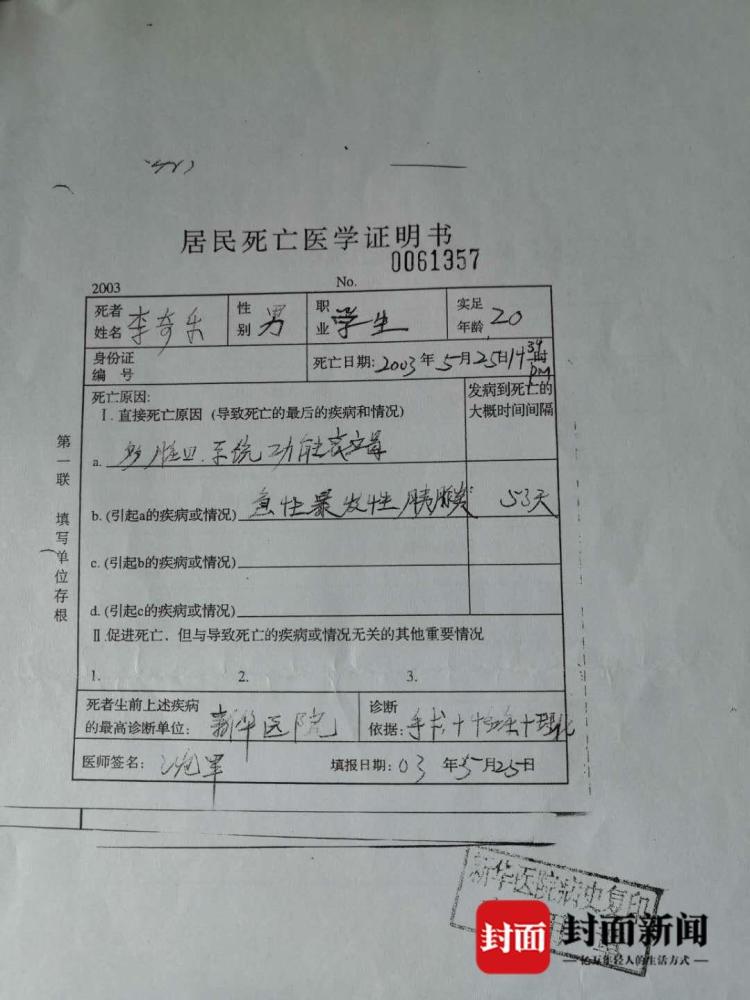 居民死亡医学证明书
0061357
2003 No.
死者姓名 李奇乐 性别 男 职业 学生 实足年龄 20
身份证编号 死亡日期:2003年5月25日14 39时 PM
死亡原因: 发病到死亡的
I. 直接死亡原因 (导致死亡的最后的疾病和情况) 大概时间间隔
a. 多脏 系统功能衰竭
b. (引起a的疾病或情况) 急性暴发性胰腺炎 53天
c. (引起b的疾病或情况)
d. (引起c的疾病或情况)
II.促进死亡、但与导致死亡的疾病或情况无关的其他重要情况
1. 2. 3.
死者生前上述疾病 诊断
的最高诊断单位: 新华医院 依据: 手术+ +理化
医师签名: 填报日期: 03年5月25日
第一联 填写单位存根
新华医院病史复印
封面 封面新闻
亿万年轻人的生活方式